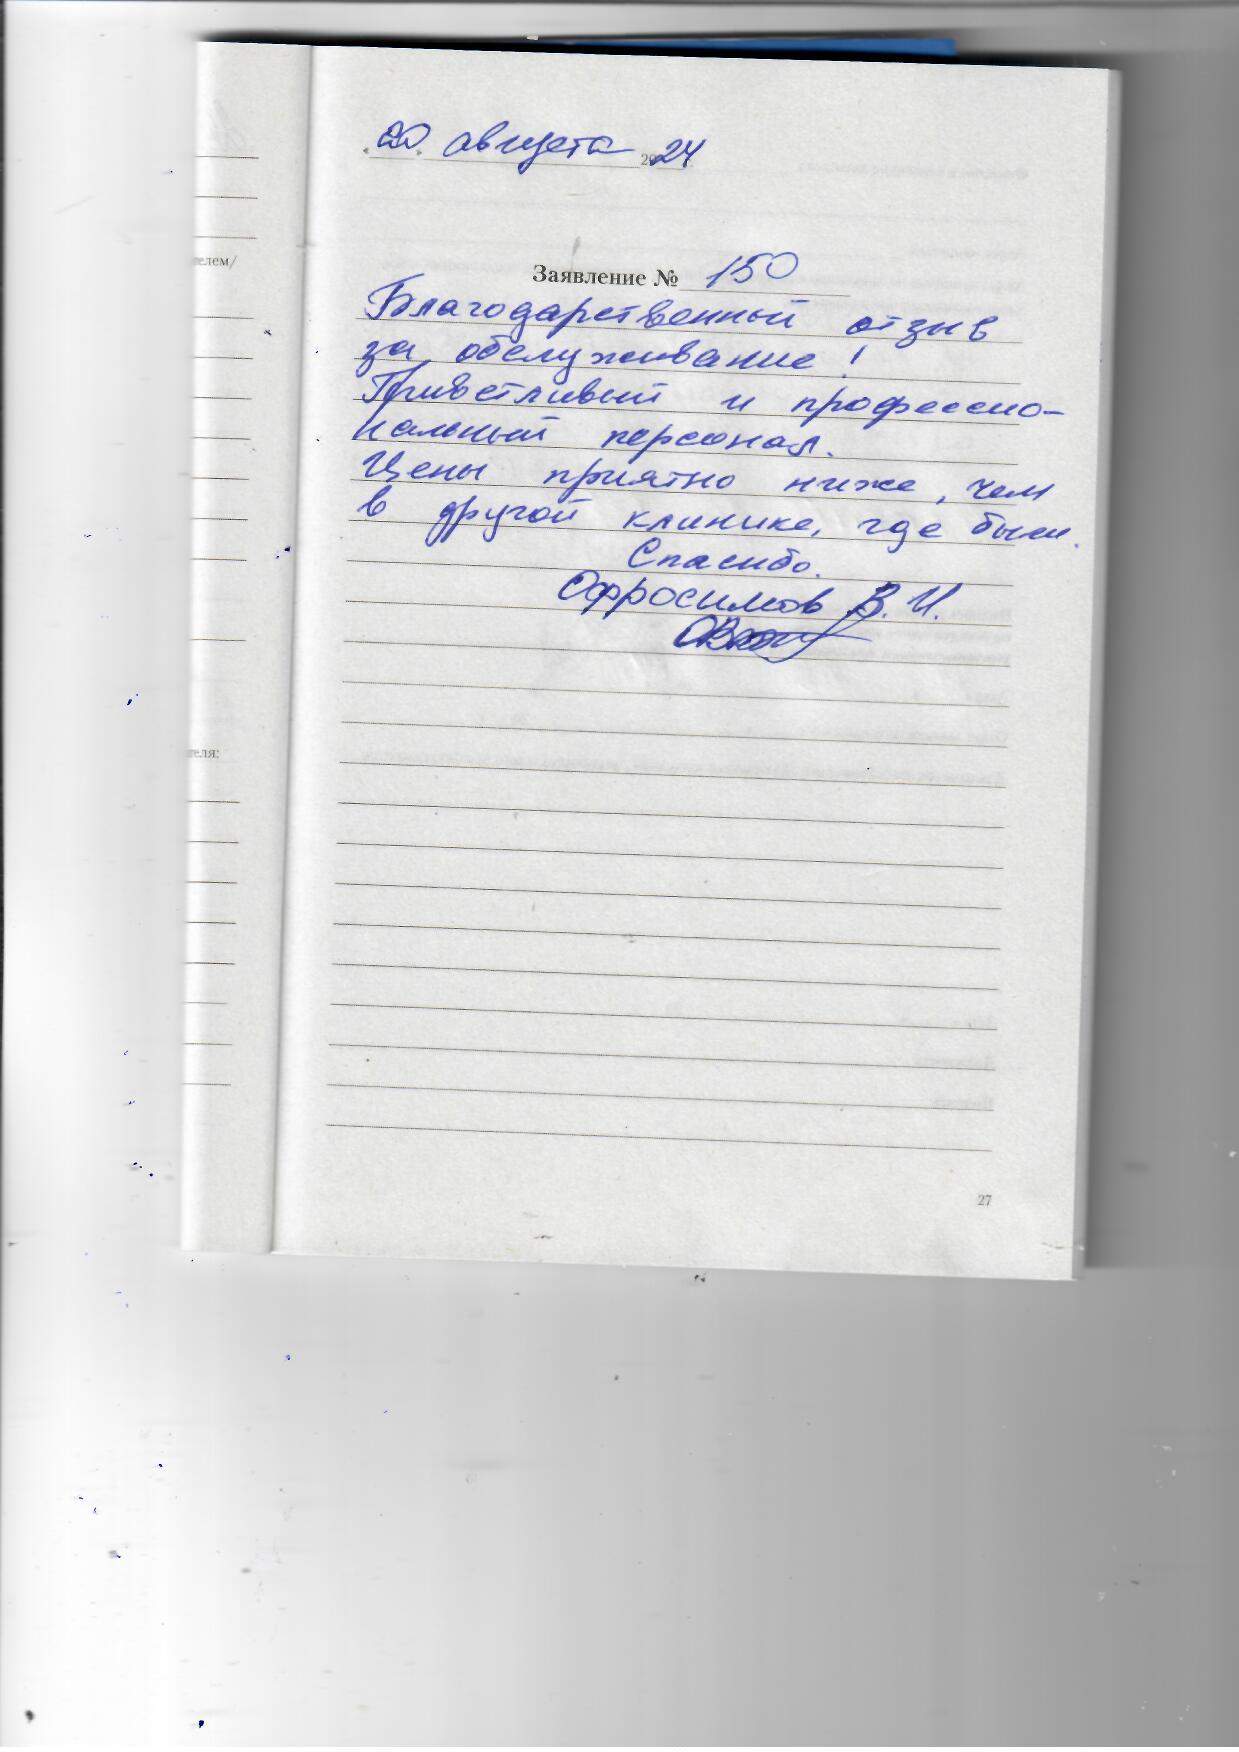 20. августа 2024
телем/
Заявление № 150
Благодарственный отзыв
за обслуживание!
Приветливый и профессио-
нальный персонал.
Цены приятно ниже, чем
в другой клинике, где были.
Спасибо.
Офросимов В.И.
теля:
27